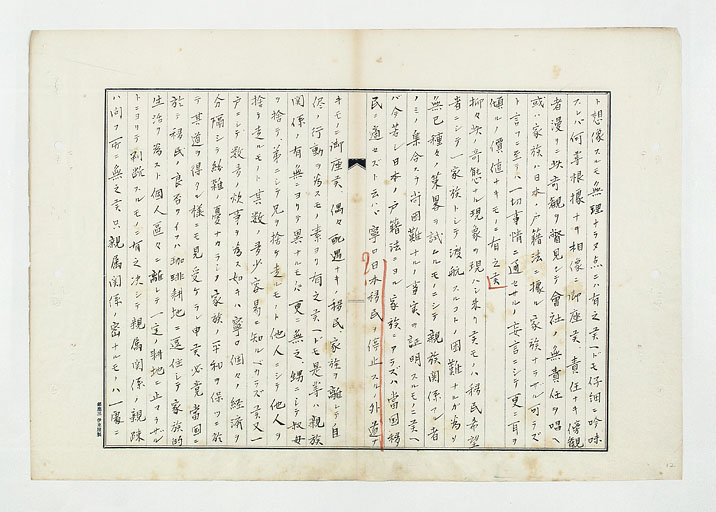 ト想像スルモ無理ナラヌ点ニハ有之候ヘドモ仔細ニ吟味
スレバ何等根據ナキ想像ニ御座候、責任ナキ傍観
者漫リニ此奇観ヲ瞥見シテ會社ノ無責任ヲ唱ヘ
或ハ家族ハ日本ノ戸籍法ニ據ル家族ナラザル可ラズ
ト言フニ至テハ一切事情ニ通セサルノ妄言ニシテ更ニ耳ヲ
傾クルノ價値ナキモノニ有之候
抑々此ノ奇態ナル現象ヲ現ハシ来リ候モノハ移民希望
者ニシテ一家族トシテ渡航スルコトノ困難ナルガ為メ
無已種々ノ策畧ヲ試ムルモノニシテ親族関係アル者
ノミノ集合スラ尚困難ナルノ事実ヲ証明スルモノニ候ヘ
バ今若シ日本ノ戸籍法ニヨル家族ニアラズハ當国移
民ニ適セズト云ハバ寧ロ日本移民ヲ停止スルノ外道ナ
キモノニ御座候、偶々配遇ナキ移民家族ヲ離レテ自
侭ノ行動ヲ為スモノ素ヨリ有之候ヘドモ是等ハ親族
関係ノ有無ニヨリテ異ナルモノニ更ニ無之、甥ニシテ叔母
ヲ捨テ弟ニシテ兄ヲ捨テ走ルモノト他人ニシテ他人ヲ
捨テ走ルモノト其数ノ多少容易ニ知ルベカラズ候又一
戸ニシテ数ヶ所ノ炊事ヲ為ス如キハ寧ロ個々ノ経済ヲ
分隔シテ紛雑ノ憂ナカラシメ家族ノ平和ヲ保フニ於
テ其道ヲ得タル様ニモ見受ケラレ申候必竟當国ニ
於テ移民ノ良否ヲイフハ珈琲耕地ニ送住シテ家族的
生活ヲ為スト個人區々ニ離レテ一定ノ耕地ニ止マラサル
トニヨリテ判断スルモノニ有之決シテ親属関係ノ親疎
ハ問フ所ニ無之候只親属関係ノ密ナルモノハ一家ニ
12